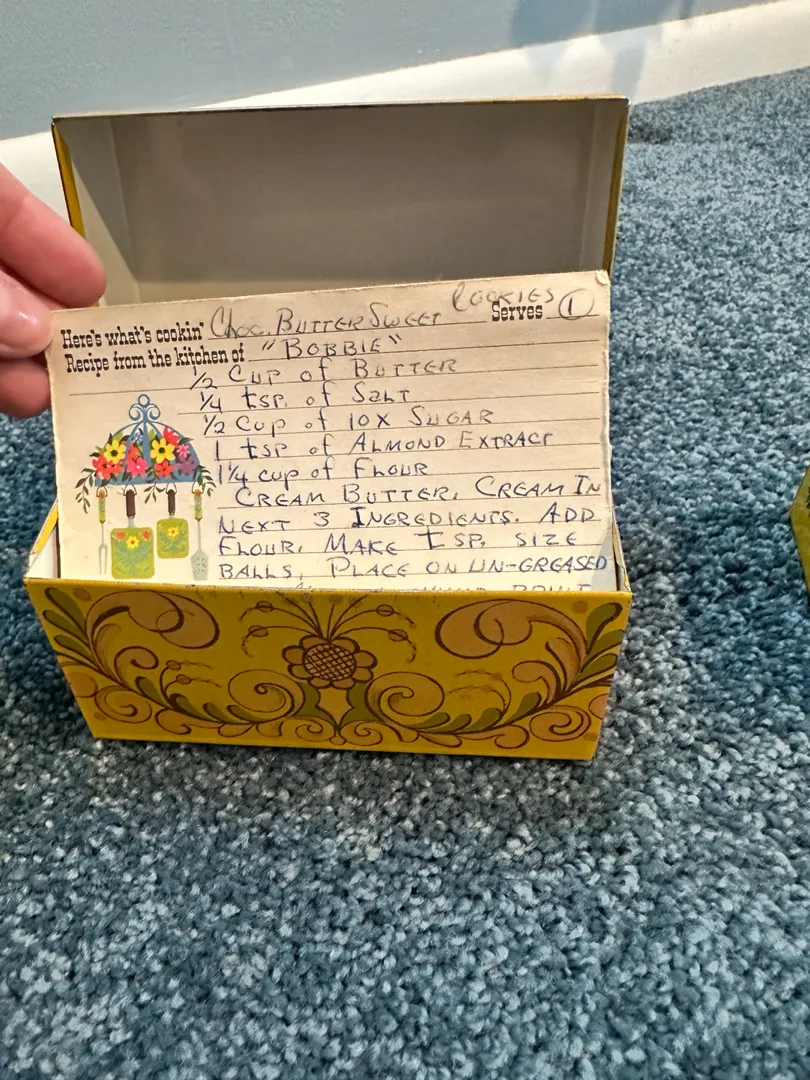 Here's what's cookin' Choc. Butter Sweet Cookies Serves 1
Recipe from the kitchen of "BOBBIE"
1/2 Cup of Butter
1/4 tsp. of Salt
1/2 Cup of 10x Sugar
1 tsp of Almond Extract
1 1/4 cup of Flour
Cream Butter. Cream In
Next 3 Ingredients. Add
Flour. Make tsp. size
Balls. Place on un-greased